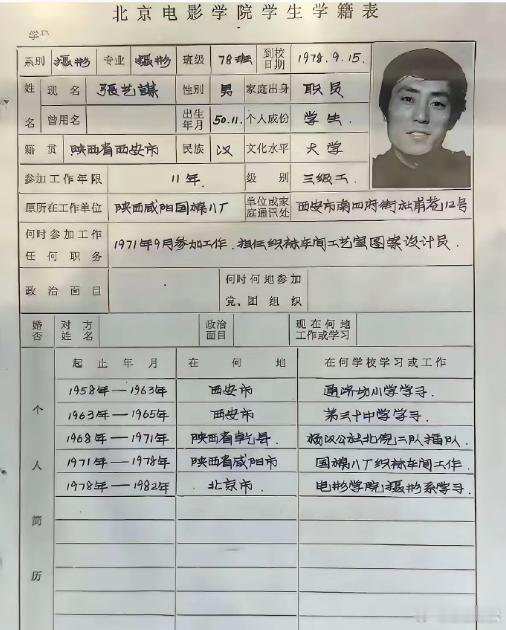 北京电影学院学生学籍表
系别 摄影 专业 摄影 班级 78班 到校日期 1978.9.15.
姓名 现名 张艺谋 性别 男 家庭出身 职员
曾用名 出生年月 50.11. 个人成份 学生.
籍贯 陕西省西安市 民族 汉 文化水平 大学
参加工作年限 11年. 级别 三级工.
原所在工作单位 陕西咸阳国棉八厂 单位或家庭通讯处 西安市南四府街社甫巷12号
何时参加工作任何职务 1971年9月参加工作.担任织袜车间工艺室图案设计员.
政治面目 何时何地参加党、团组织
婚否 对方姓名 政治面目 现在何地工作或学习
个人简历 起止年月 在何地 在何学校学习或工作
1958年—1963年 西安市 通济坊小学学习
1963年—1965年 西安市. 第三十中学学习.
1968年—1971年 陕西省乾县. 杨汉公社北倪二队插队.
1971年—1978年 陕西省咸阳市 国棉八厂织袜车间工作.
1978年—1982年 北京市. 电影学院摄影系学习.